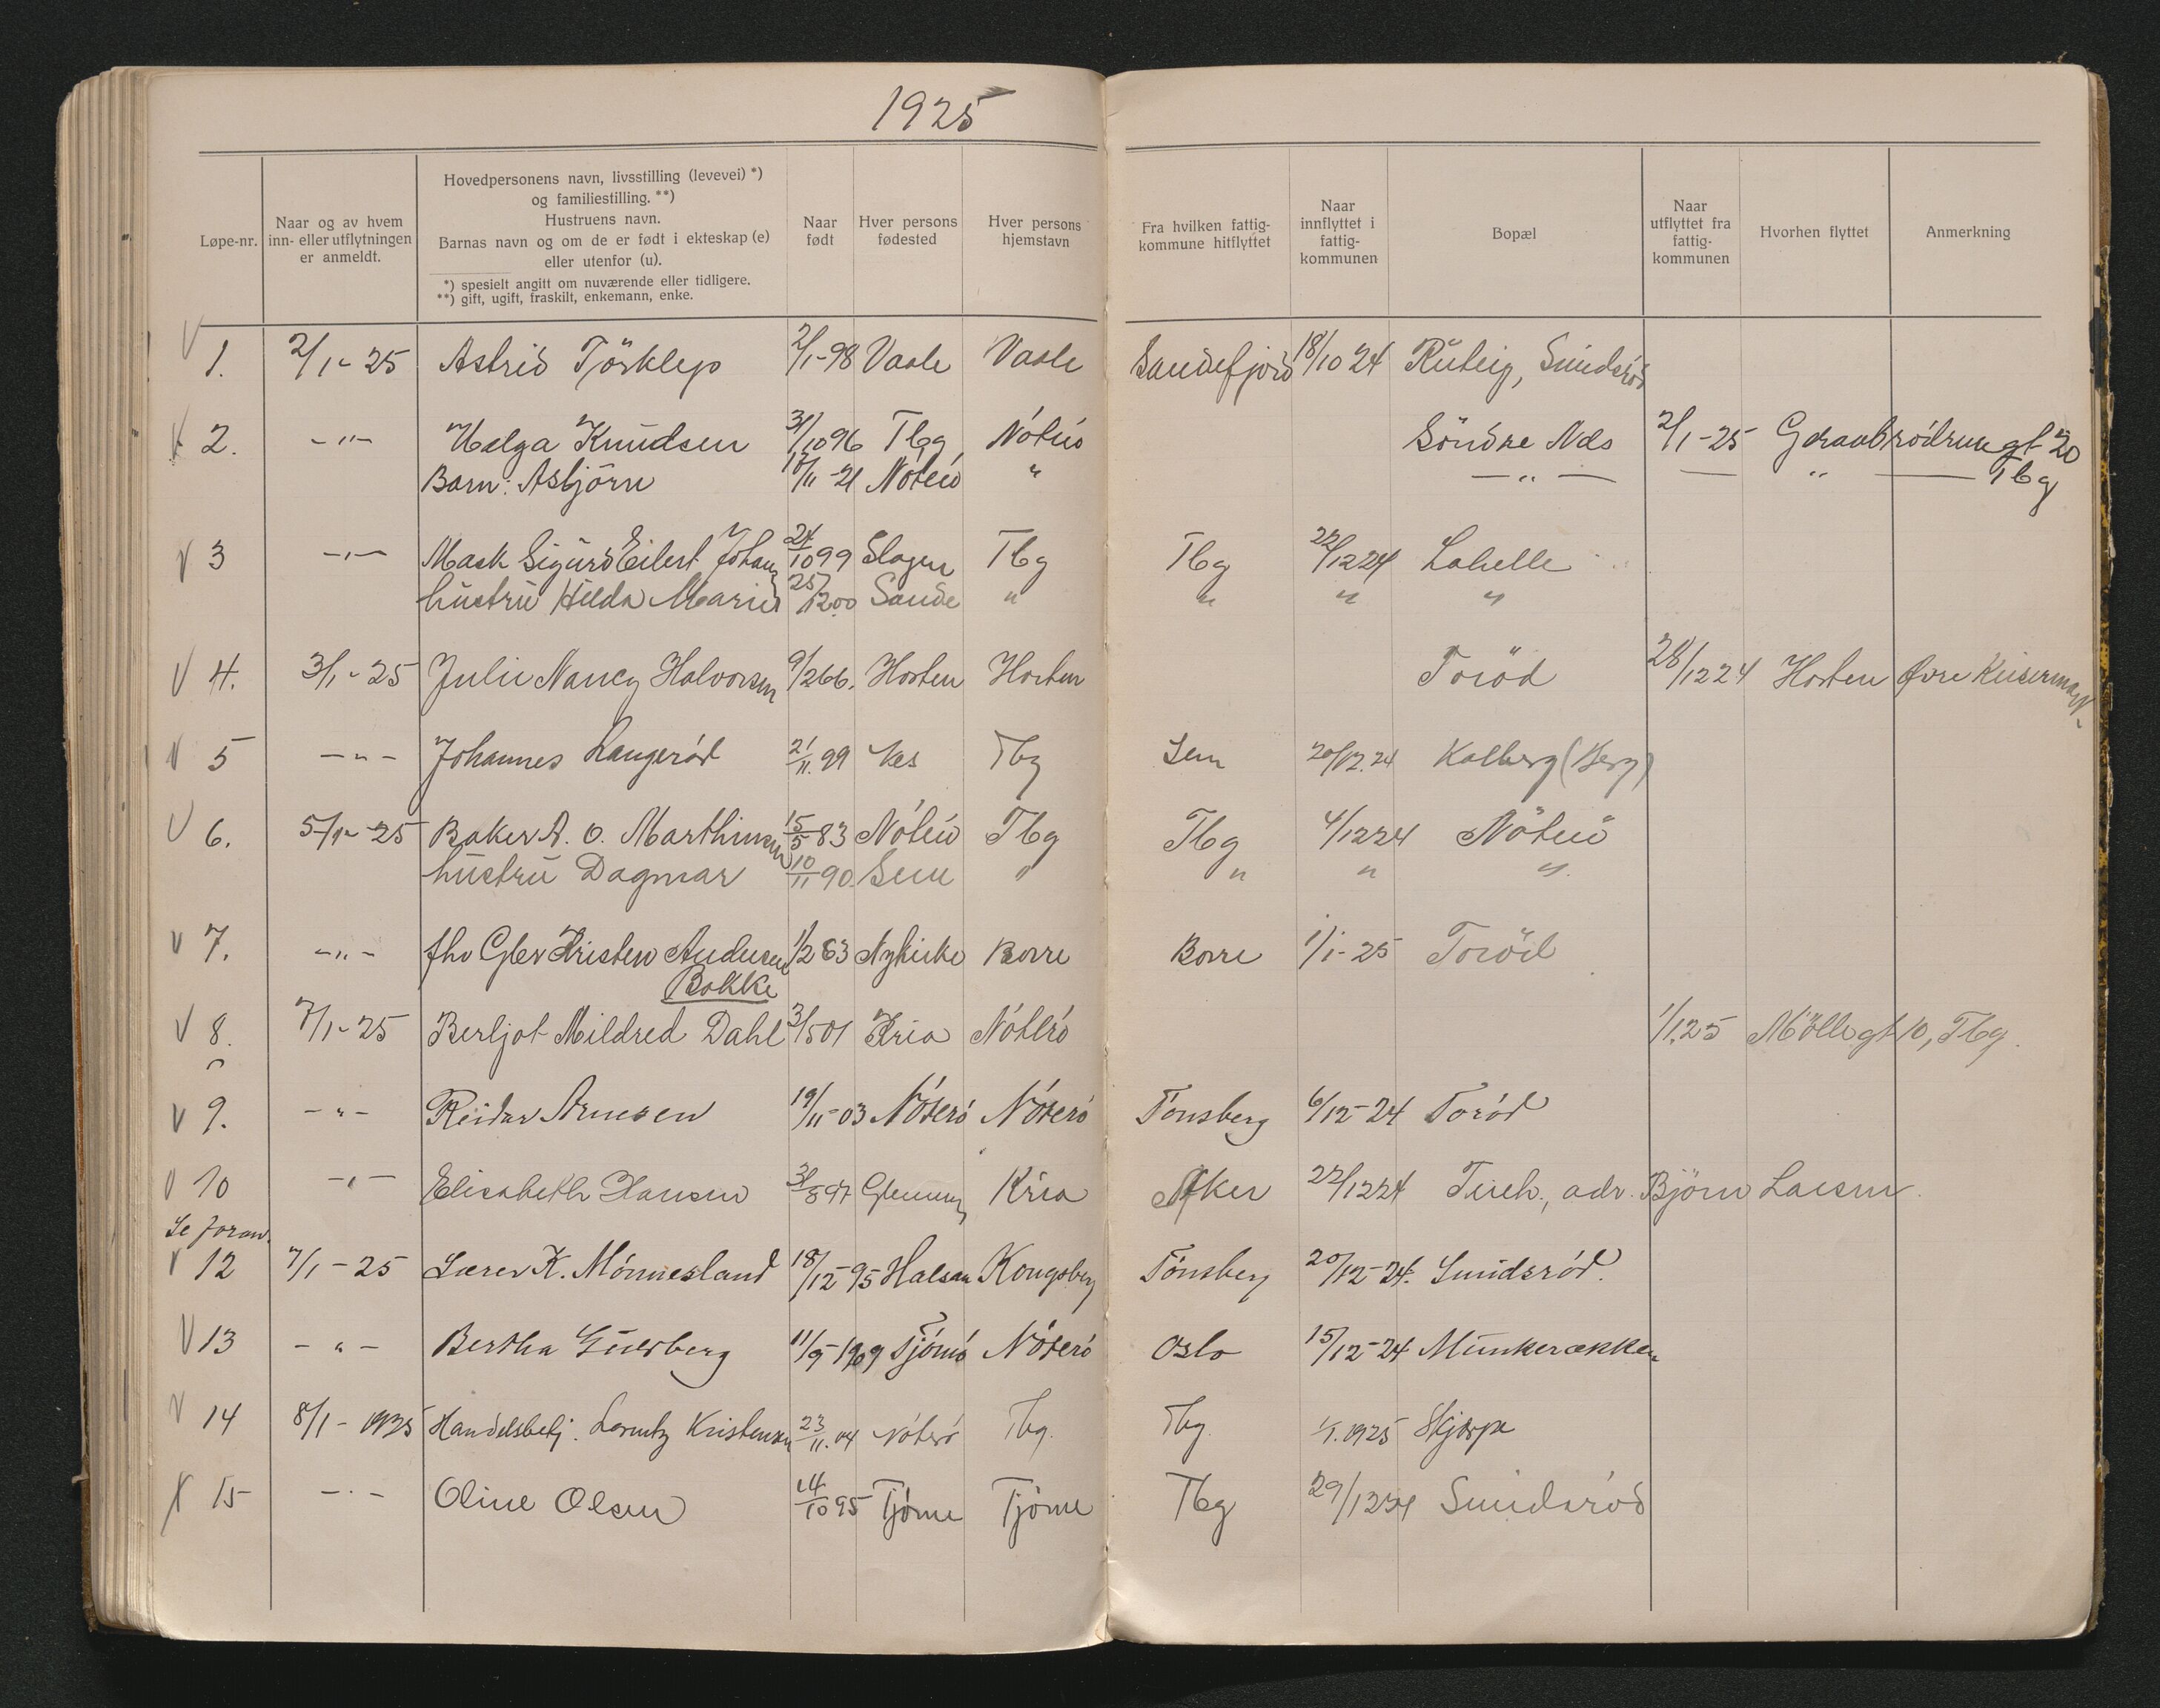 1925
Løpe-nr.
Naar og av hvem inn- eller utflytningen er anmeldt.
Hovedpersonens navn, livsstilling (levevei) *)
og familiestilling. **)
Hustruens navn.
Barnas navn og om de er født i ekteskap (e)
eller utenfor (u).
*) spesielt angitt om nuværende eller tidligere.
**) gift, ugift, fraskilt, enkemann, enke.
Naar født
Hver persons fødested
Hver persons hjemstavn
Fra hvilken fattig-kommune hitflyttet
Naar innflyttet i fattig-kommunen
Bopæl
Naar utflyttet fra fattig-kommunen
Hvorhen flyttet
Anmerkning
1. 2/1-25 Astrid Törklep 2/1-98 Vaale Vaale Sandefjord 18/10 24 Sundsröd
2. -"- Helga Knudsen 31/10 96 Tbg Nöterö Söndre Nds 2/1-25 20
Barn: Asbjörn /11-21 Nöterö " -"- - " - Tbg
3 -"- Mask Sigurd Eilert Johan 24/10 99 Slagen Tbg Tbg 22/12 24 Lahelle
hustru Hilda Marie 25/12 00 Sande " " " "
4. 3/1-25 Julie Nancy Halvorsen 9/2 66. Horten Horten Toröd 28/12 24 Horten Øvre
5 -"- Johannes Haugeröd 21/11. 99 Tbg Sem 20/12. 24 Kalberg (Berg)
6. 5/1-25 Baker A. O. Marthinsen 15/5 83 Nöterö Tbg Tbg 4/12 24 Nöterö
hustru Dagmar 10/11 90 Sem " " " "
7. -"- fhv Gbr Kristen Andersen 1/2 63 Nykirke Borre Borre 1/1-25 Toröd
Bakke
8. 7/1-25 Berljot Mildred Dahl 3/5 01 Kria Nöterö 1/1 25 Möllegt 10, Tbg.
9. -"- Reidar Arnesen 19/11-03 Nöterö Nöterö Tönsberg 6/12-24 Toröd
10 -"- Elisabeth Hansen 31/8 97 Kria Aker 22/12 24 adr. Björn Larsen.
Se foran.
12 7/1-25 Lærer K. Mönnesland 18/12-95 Kongsberg Tönsberg 20/12-24. Sundsröd.
13 -"- Bertha 11/9-1909 Tjömö Nöterö Oslo 15/12-24 Munkerækken
14 8/1-1925 Handelsbetj. Lorentz Kristensen 23/11. 04 Nöterö Tbg. Tbg. 1/1. 1925 Skjerpe
15 -"- Oline Olsen 14/10 95 Tjöme Tjöme Tbg 29/12 24 Sundsröd